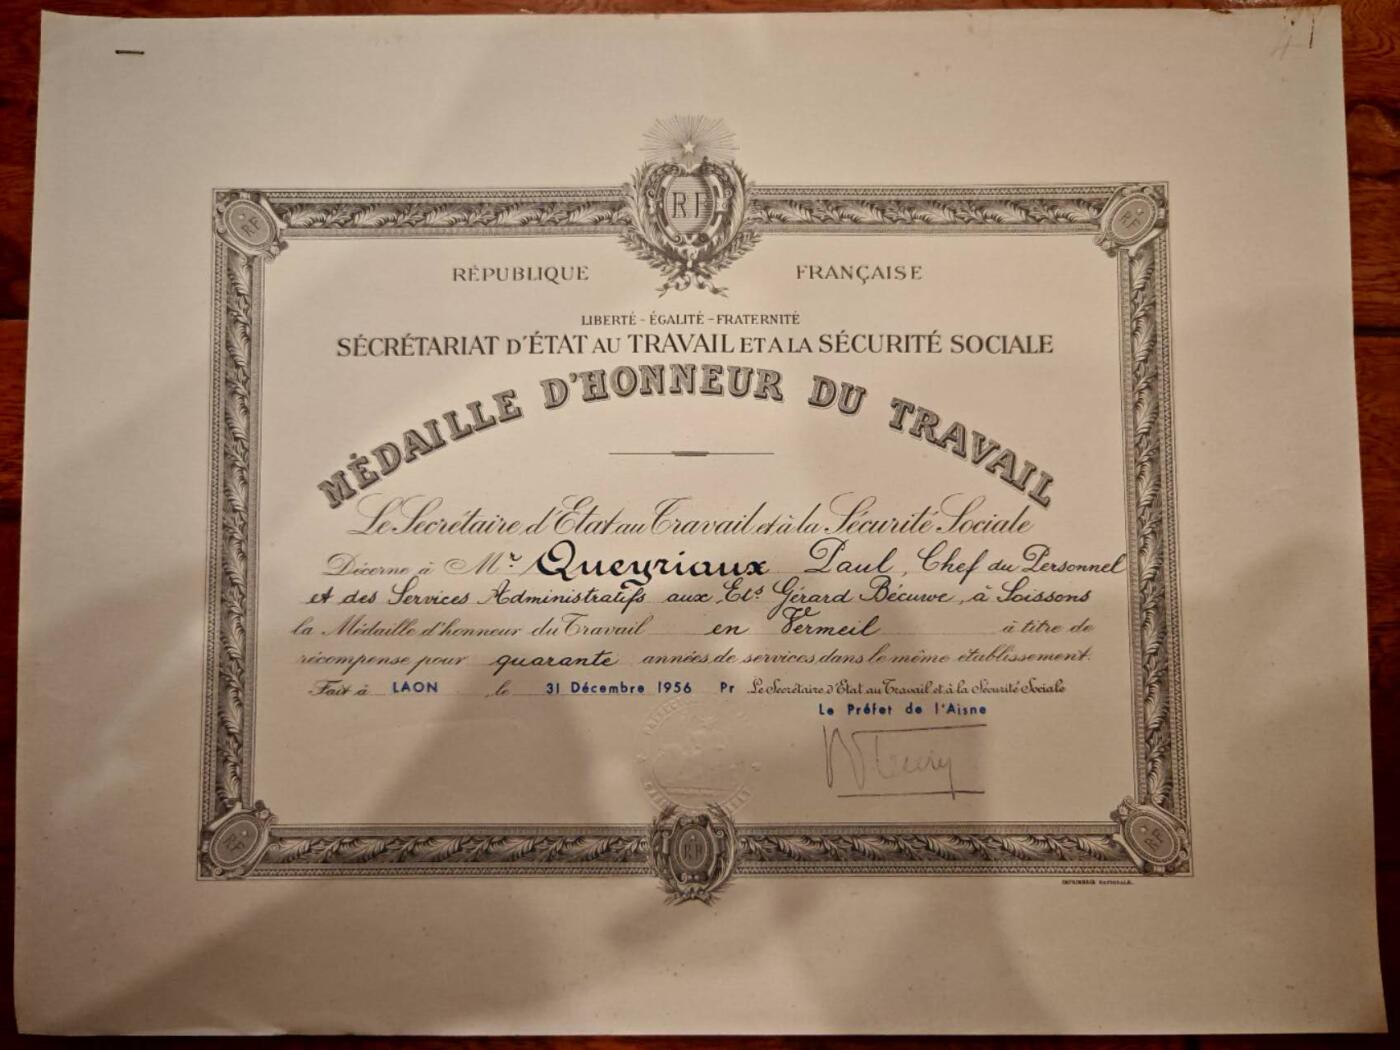 RF
RF
RF
RÉPUBLIQUE FRANÇAISE
LIBERTÉ - ÉGALITÉ - FRATERNITÉ
SÉCRÉTARIAT D'ÉTAT AU TRAVAIL ET A LA SÉCURITÉ SOCIALE
MÉDAILLE D'HONNEUR DU TRAVAIL
Le Secrétaire d'Etat au Travail et à la Sécurité Sociale
Décerne à Mr. Queyriaux Paul, Chef du Personnel
et des Services Administratifs aux Ets Gérard Bécuwe, à Soissons
la Médaille d'honneur du Travail en Vermeil à titre de
récompense pour quarante années de services dans le même établissement.
Fait à LAON le 31 Décembre 1956 Pr Le Secrétaire d'Etat au Travail et à la Sécurité Sociale
Le Préfet de l'Aisne
RF
RF
RF
IMPRIMERIE NATIONALE.